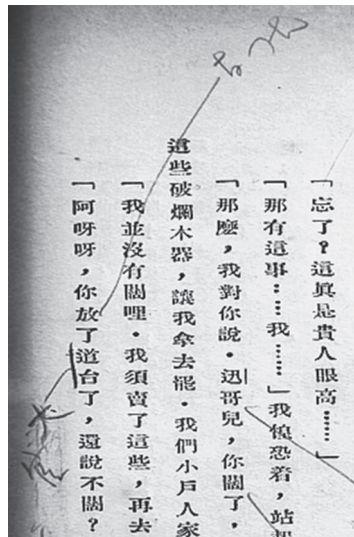 「忘了？這眞是貴人眼高……」
「那有這事……我……」我惶恐着，站
「那麼，我對你說。迅哥兒，你闊了，
這些破爛木器，讓我拿去罷。我們小戶人家
「我並沒有闊哩。我須賣了這些，再去
「阿呀呀，你放了道台了，還說不闊？